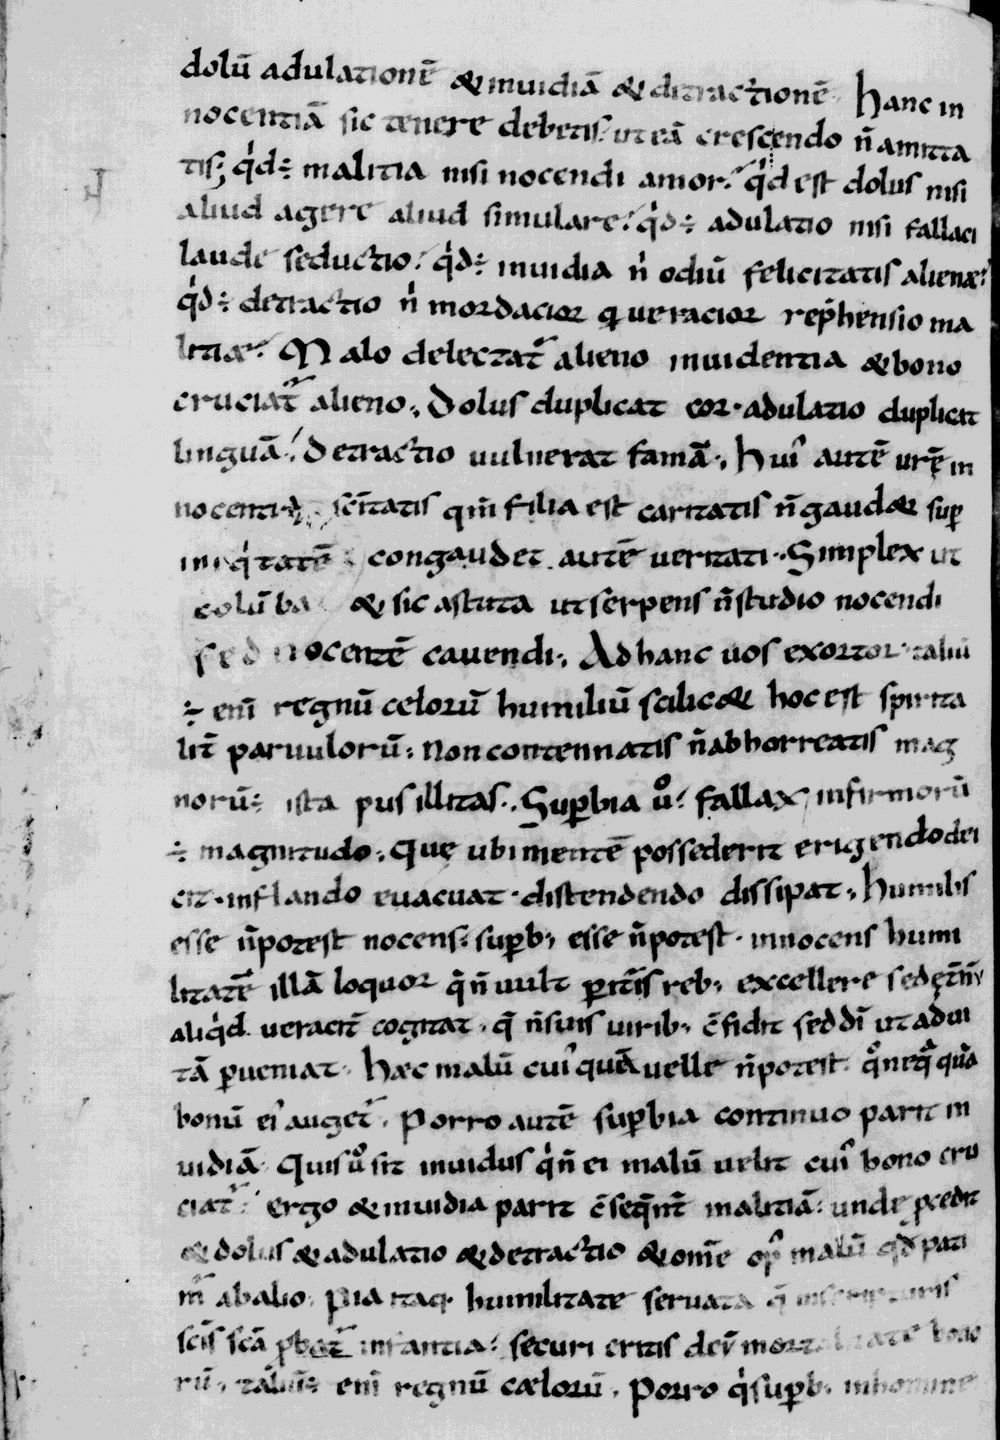 dolū adulationē & inuidiā & ditractionē. hanc in
nocentiā sic tenere debetis: ut eā crescendo n̄ amitta
tis; qd÷ malitia nisi nocendi amor? qd est dolus nisi
aliud agere aliud simulare? qd÷ adulatio nisi fallaci
laude seductio? qd÷ inuidia n̄ odiū felicitatis alienæ?
qd÷ detractio n̄ mordacior q ueracior rep̄hensio ma
litiæ? Malo delectat̄ alieno inuidentia & bono
cruciat̄ alieno; Dolus duplicat cor · adulatio duplicat
linguā; Detractio uulnerat famā; hui᾽ autē ur̄ę in
nocentię scītatis qm̄ filia est caritatis n̄ gaud& sup̄
iniq̇tatē congaudet autē ueritati · Simplex ut
colūba & sic astuta ut serpens n̄ studio nocendi
sed nocentē cavendi; Ad hanc uos exortor · taliū
÷ eni᾽ regnū celorū humiliū scilic& hoc est spirita
lit̄ paruulorū: Non contemnatis n̄ abhorreatis mag
norū÷ ista pusillitas. Sup̄bia ů: fallax infirmorū
÷ magnitudo; Quę ubi mentē possederit erigendo dei
cit · inflando euacuat · distendendo dissipat; humilis
esse n̄ potest nocens: sup̄b; esse n̄ potest · innocens humi
litatē illā loquor q̄ n̄ uult p̄itis reb; excellere sed ęt̄n̄
aliq̇d ueracit̄ cogitat · q̄ n̄ suis uirib; c̄fidit sed dī ut ad ui
tā p̄ueniat · hæc malū cui᾽quā uelle n̄ potest · q̊ neq̄quā
bonū ei᾽ auget̄ · Porro autē sup̄bia continuo parit in
uidiā · Quis ů sit inuidus q̇ n̄ ei malū uelit cui᾽ bono cru
ciat̄? ergo & inuidia parit c̄seq̄nt̄ malitiā: unde p̄cedit
& dolus & adulatio & detractio & om̄e op᾽ malū qd pati
n̄ ab alio · Pia itaq; humilitate seruata q̄ in scripturis
sc̄is sc̄a p̄bat̄ infantia: securi eritis de inmortalitate bono
rū; taliū÷ eni᾽ regnū cælorū · Porro q̇ sup̄b; in homine